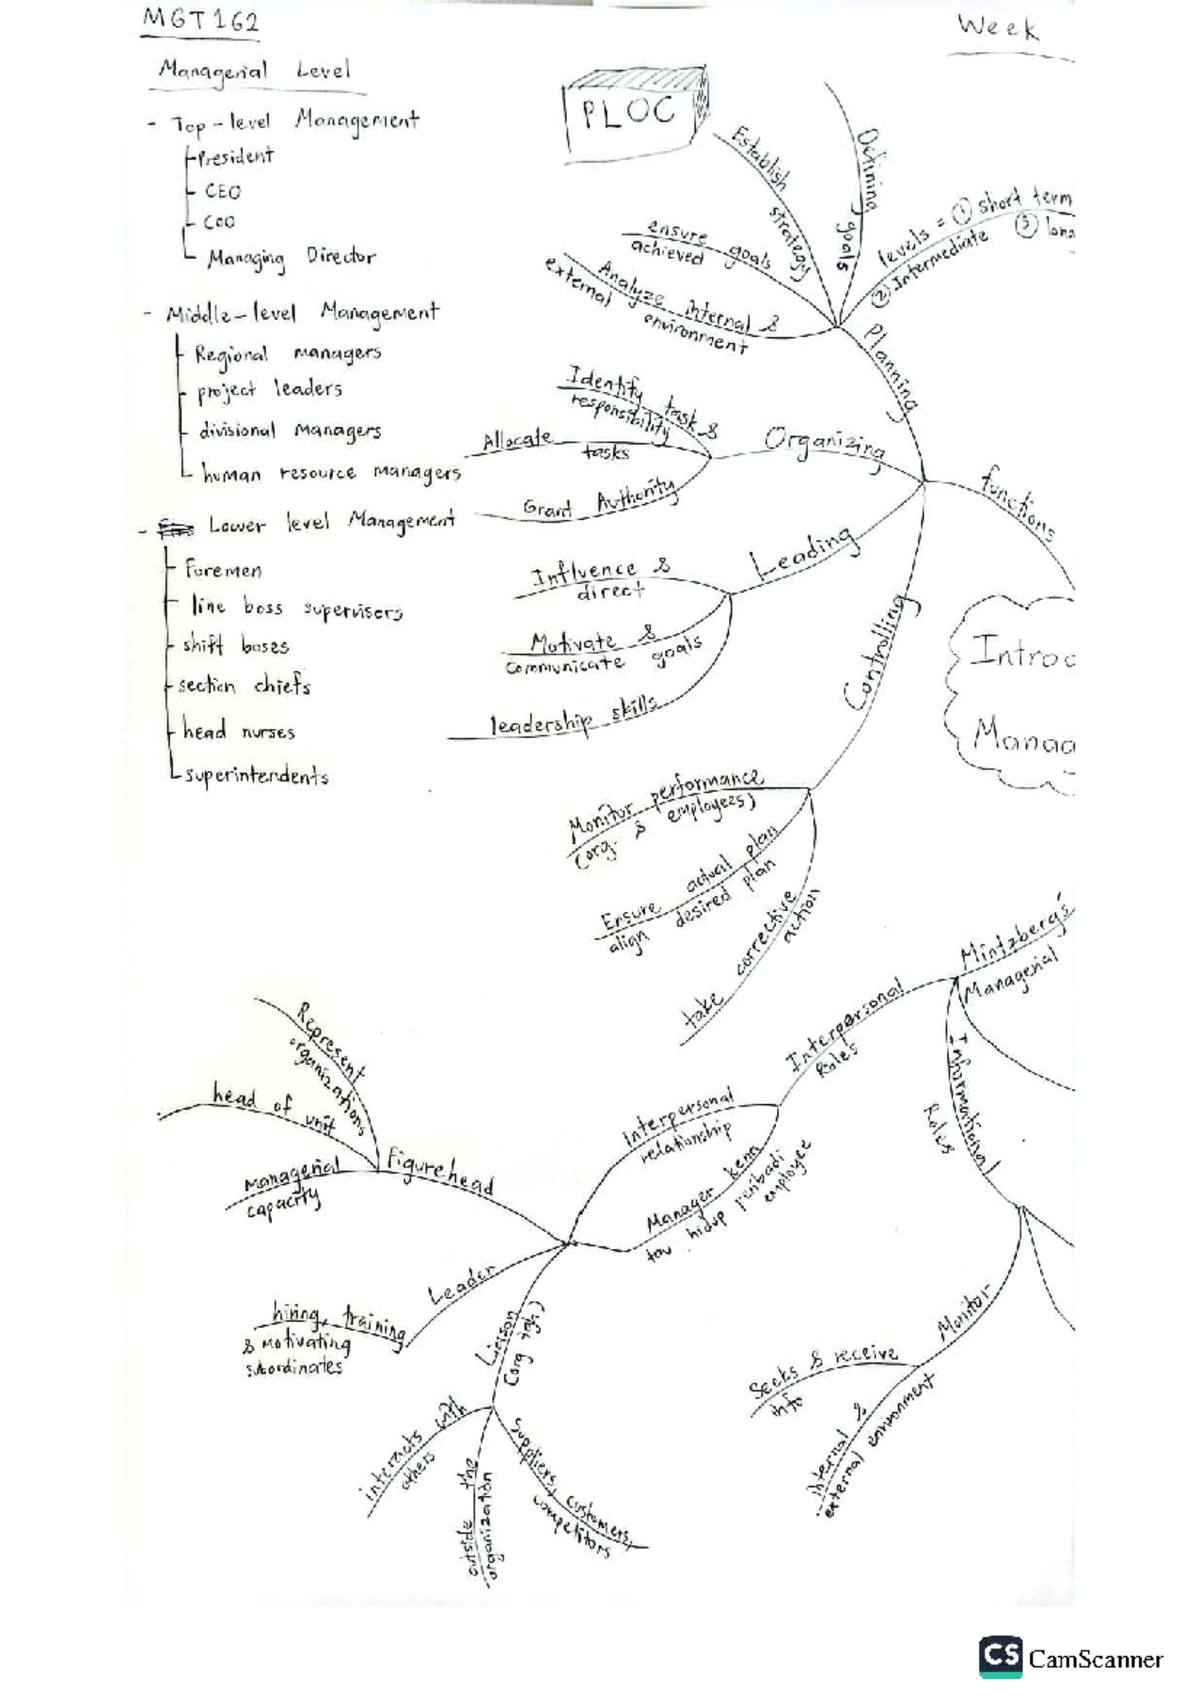 MGT162
Week
Managerial Level
- Top-level Management
President
CEO
COO
Managing Director
- Middle-level Management
Regional managers
project leaders
divisional managers
human resource managers
- Lower level Management
Foremen
line boss supervisors
shift boses
section chiefs
head nurses
superintendents
PLOC
Establish
strategy
Defining
goals
levels = ① short term
② Intermediate
③ long
ensure goals
achieved
Analyze internal &
external environment
Planning
Identify task &
responsibility
Allocate
tasks
Grant Authority
Organizing
functions
Leading
Influence &
direct
Motivate &
communicate goals
leadership skills
Controlling
Introd
Manag
Monitor performance
(org. & employees)
Ensure actual plan
align desired plan
take corrective
action
Mintzberg's
Managerial
Interpersonal
Roles
Informational
Roles
Interpersonal
relationship
Manager kena
tau hidup peribadi
employee
Represent
organizations
head of unit
Managerial
capacity
Figurehead
Leader
hiring, training
& motivating
subordinates
Liaison
interacts with
others
outside the
organization
Suppliers, customers,
competitors
Monitor
Seeks & receive
info
internal &
external environment
CS CamScanner